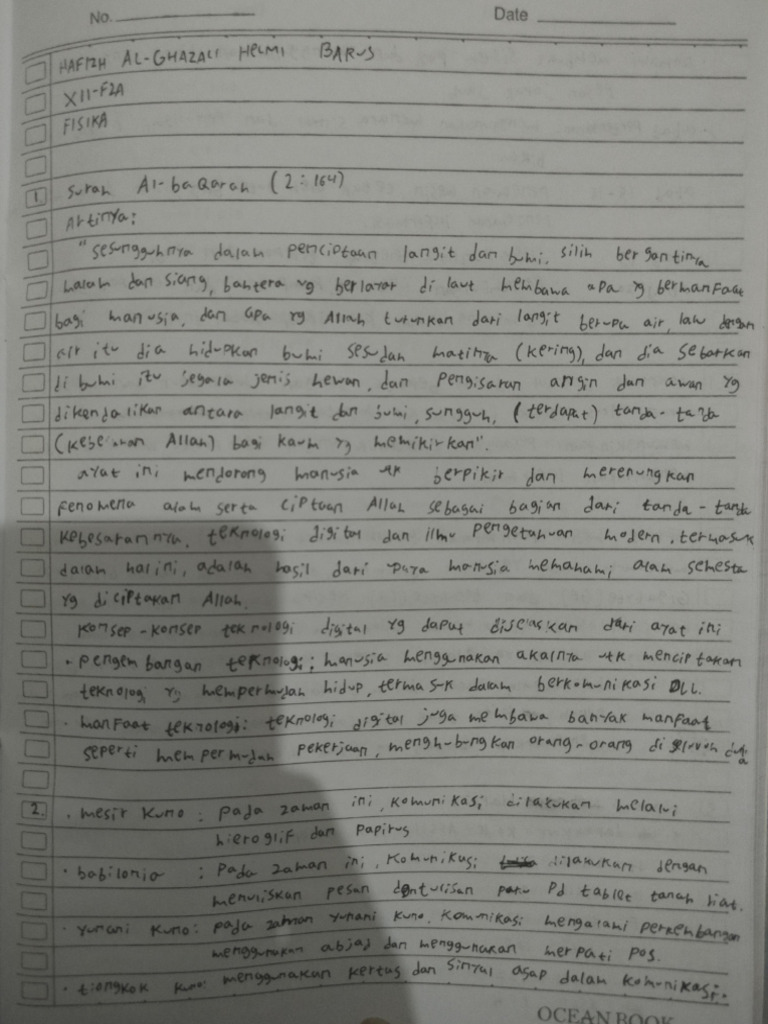 No.
Date
HAFIZH AL-GHAZALI HELMI BARUS
XII-F2A
FISIKA
1. Surah Al-baQarah (2:164)
Artinya:
"Sesungguhnya dalam penciptaan langit dan bumi, silih bergantinya
malam dan siang, bahtera yg berlayar di laut membawa apa yg bermanfaat
bagi manusia, dan apa yg Allah turunkan dari langit berupa air, lalu dengan
air itu dia hidupkan bumi sesudah matinya (kering), dan dia sebarkan
di bumi itu segala jenis hewan, dan pengisaran angin dan awan yg
dikendalikan antara langit dan bumi, sungguh, (terdapat) tanda-tanda
(kebesaran Allah) bagi kaum yg memikirkan".
ayat ini mendorong manusia utk berpikir dan merenungkan
Fenomena alam serta ciptaan Allah sebagai bagian dari tanda-tanda
kebesarannya. teknologi digital dan ilmu pengetahuan modern, termasuk
dalam hal ini, adalah hasil dari manusia memahami alam semesta
yg diciptakan Allah.
Konsep-konsep teknologi digital yg dapat dijelaskan dari ayat ini
• pengembangan teknologi: manusia menggunakan akalnya utk menciptakan
teknologi yg mempermudah hidup, termasuk dalam berkomunikasi DLL.
• manfaat teknologi: teknologi digital juga membawa banyak manfaat
seperti mempermudah pekerjaan, menghubungkan orang-orang di seluruh dunia
2. • mesir kuno : pada zaman ini, komunikasi dilakukan melalui
hieroglif dan papirus
• babilonia : Pada zaman ini, komunikasi dilakukan dengan
menuliskan pesan Pd tablet tanah liat.
• yunani kuno: pada zaman yunani kuno, komunikasi mengalami perkembangan
menggunakan abjad dan menggunakan merpati pos.
• tiongkok kuno: menggunakan kertas dan sinyal asap dalam komunikasi.
OCEAN BOOK